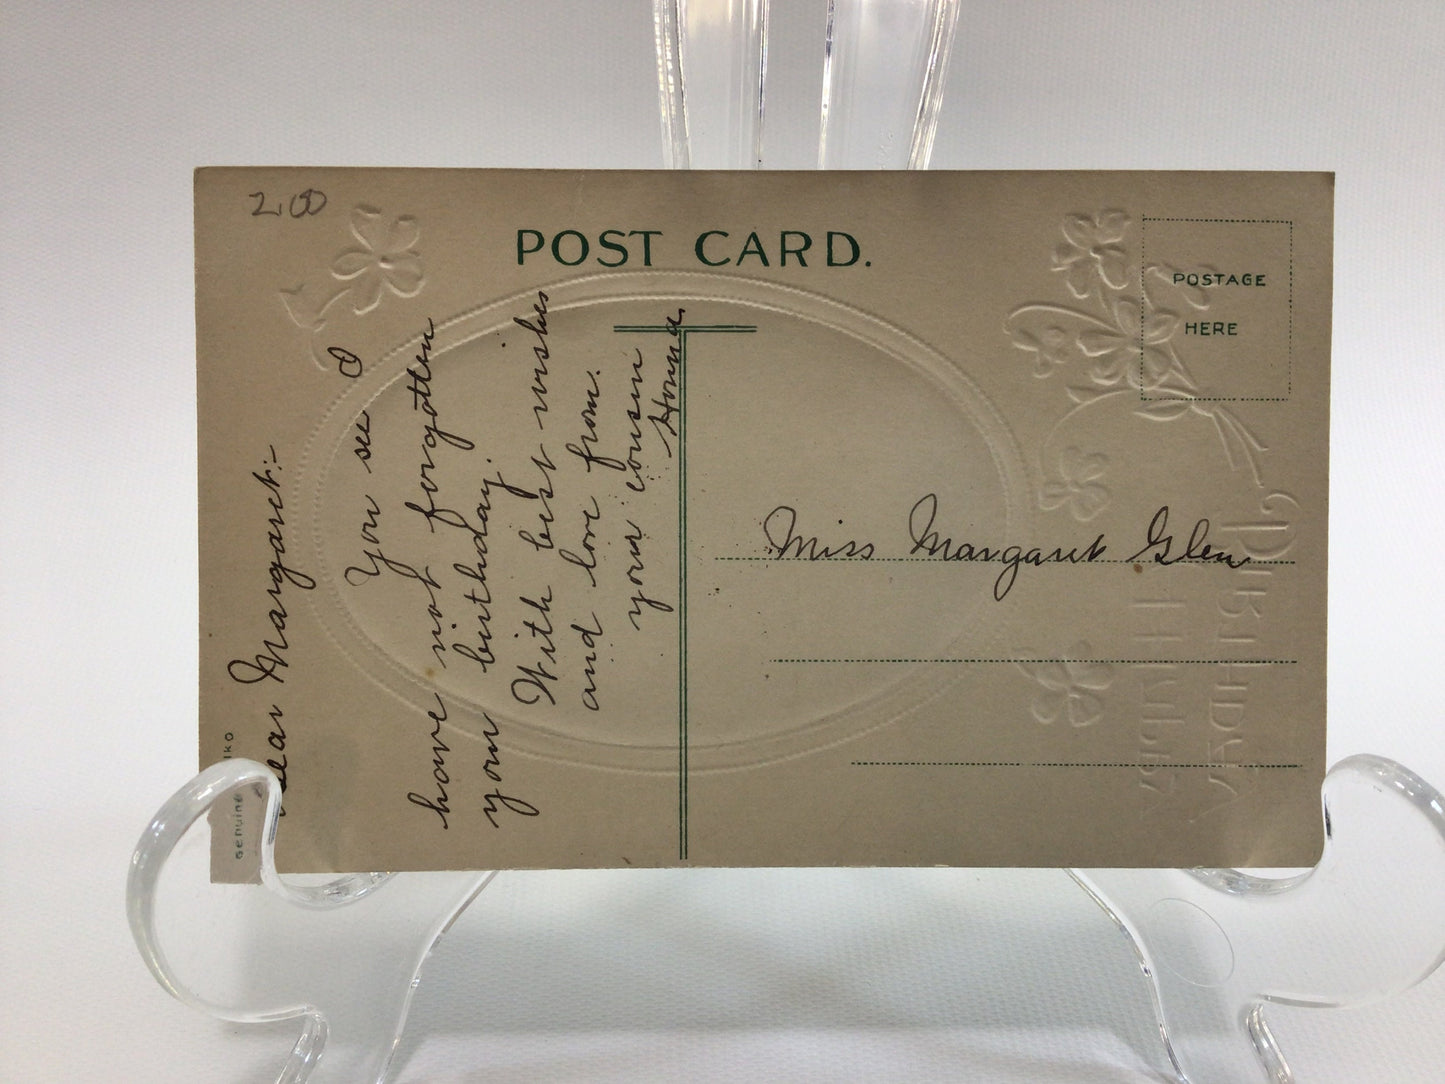 2.00
POST CARD.
POSTAGE
HERE
Dear Margaret:-
You see I
have not forgotten
your birthday.
With best wishes
and love from.
your cousin
Miss Margaret Glen
genuine
BIRTHDAY